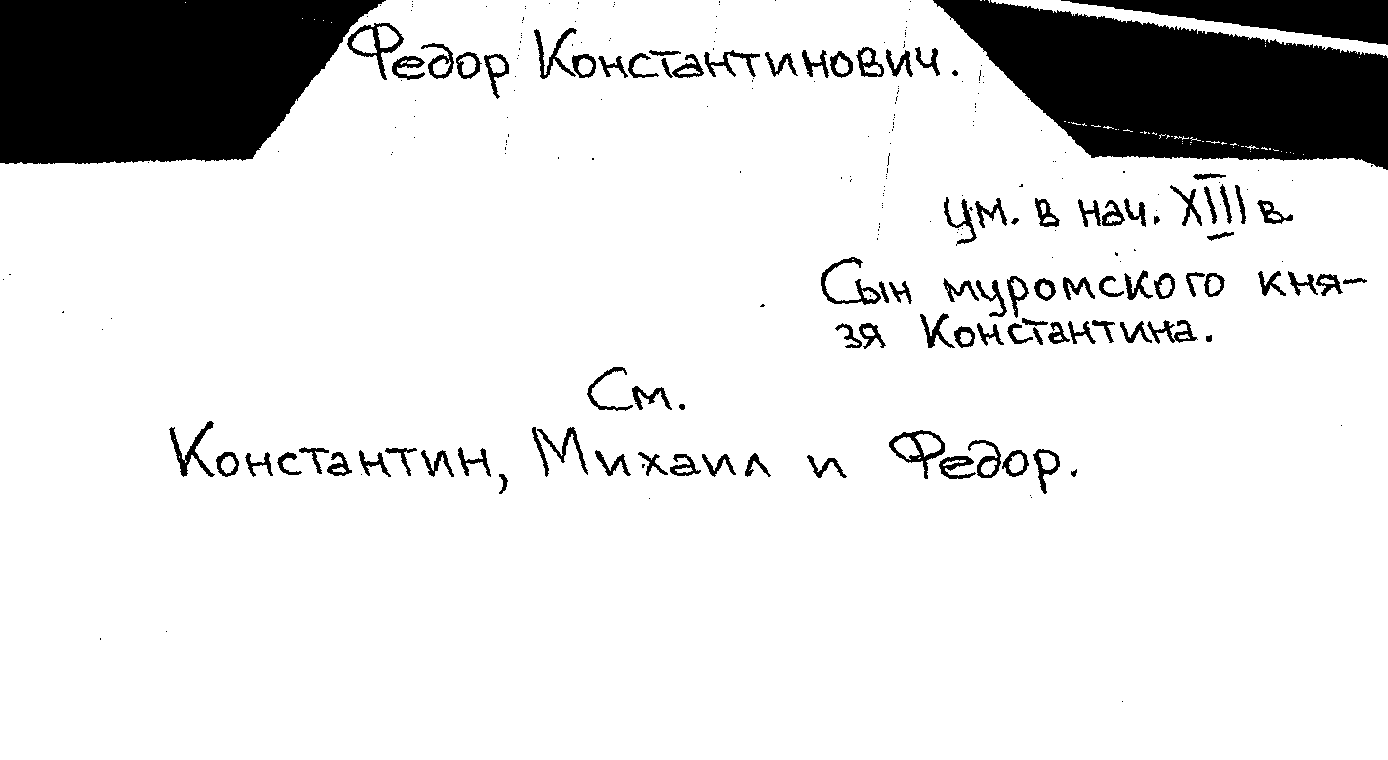 Федор Константинович.
ум. в нач. XIII в.
Сын муромского кня-
зя Константина.
См.
Константин, Михаил и Федор.